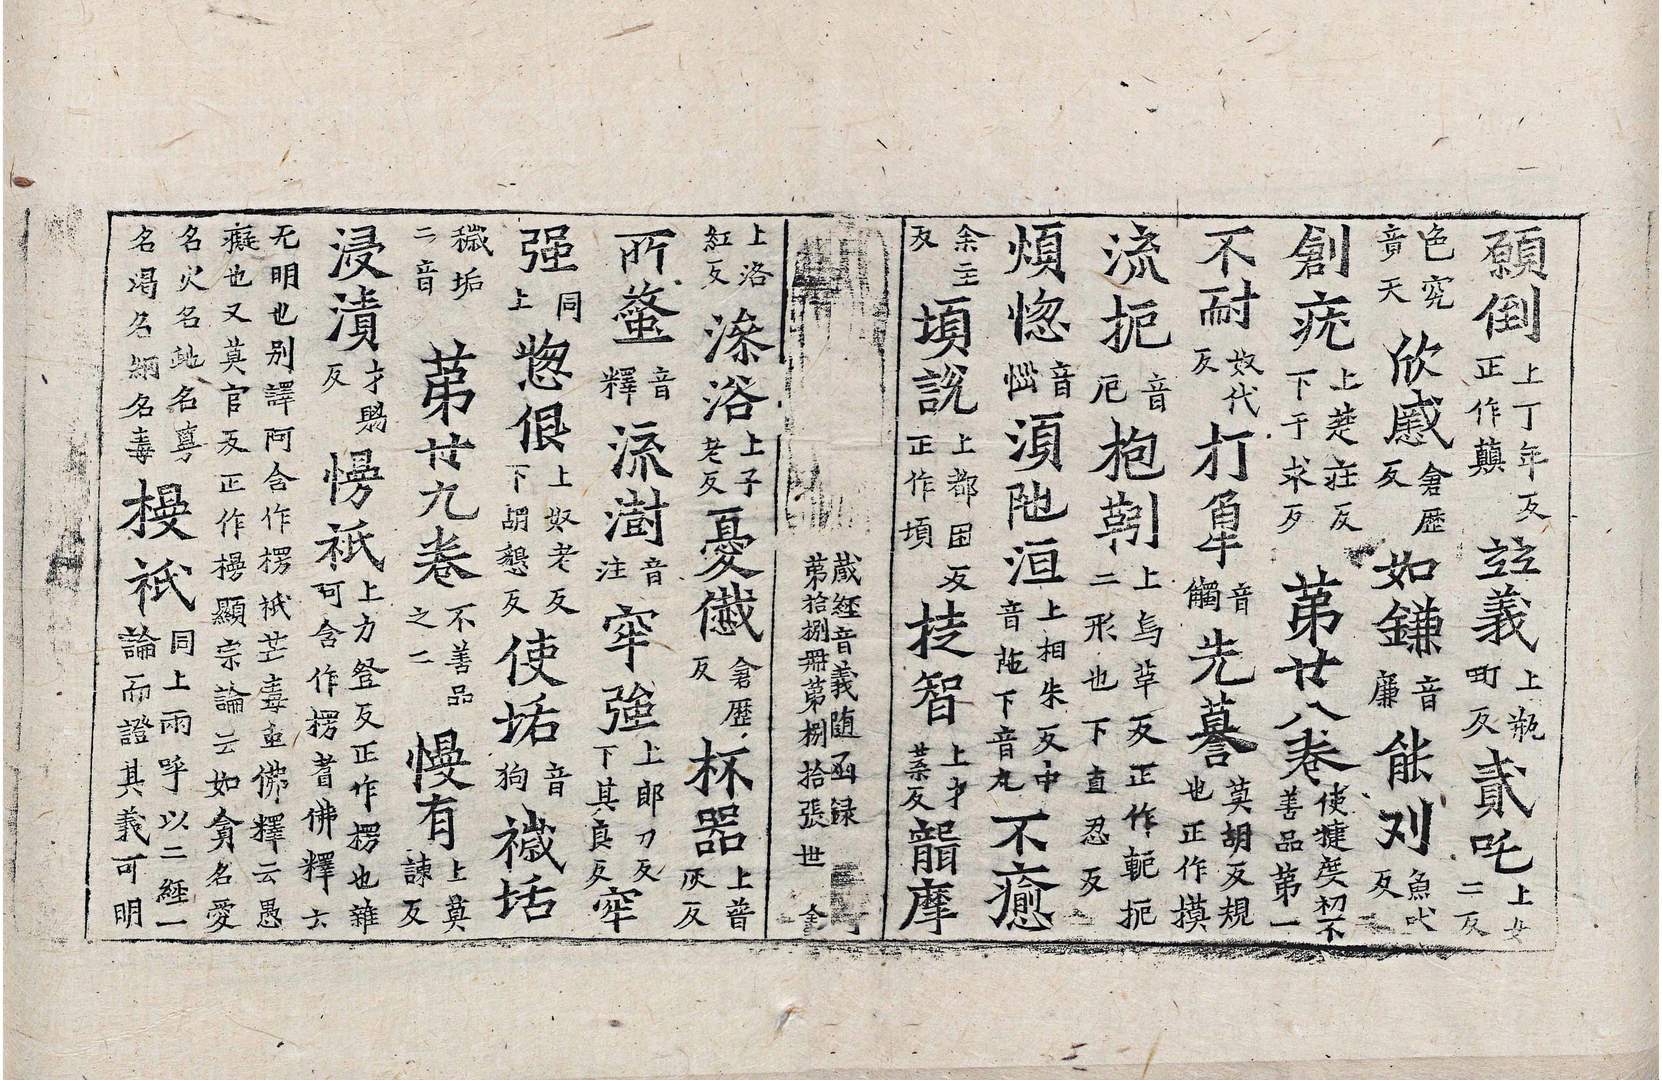 願倒上丁年反正作顛竝義上瓶町反貳吒上女二反
色究音天欣慼倉歷反如鎌音廉能刈魚吠反
創疣上楚莊反下于求反第廿八卷使揵度初不善品第一
不耐奴代反打觕音觸先謩莫胡反規也正作摸
流扼音厄抱靷上烏革反正作軛扼二形也下直忍反
煩惚音惱湏阤洹上相朱反中音陁下音丸不癒
余主反頊說上都困反正作頓㨗智上才葉反龍摩
藏經音義隨函録第拾捌冊第捌拾張世
上洛紅反澡浴上子老反憂慽倉歷反杯器上普灰反
所螫音釋流澍音注牢強上郎刀反下其良反牢
强同上惚俱上奴老反下胡懇反使垢音狗穢垢
穢垢二音第廿九卷不善品之二慢有上莫諫反
浸漬才賜反㥬祇上方登反正作楞也雜阿含作楞耆佛釋云
无明也别譯阿含作楞祇芒毒重佛釋云愚癡也又莫官反正作㮽顯宗論云如貪名愛
名火名虵名蕚名渴名網名毒㮽祇同上兩呼以二經一論而證其義可明